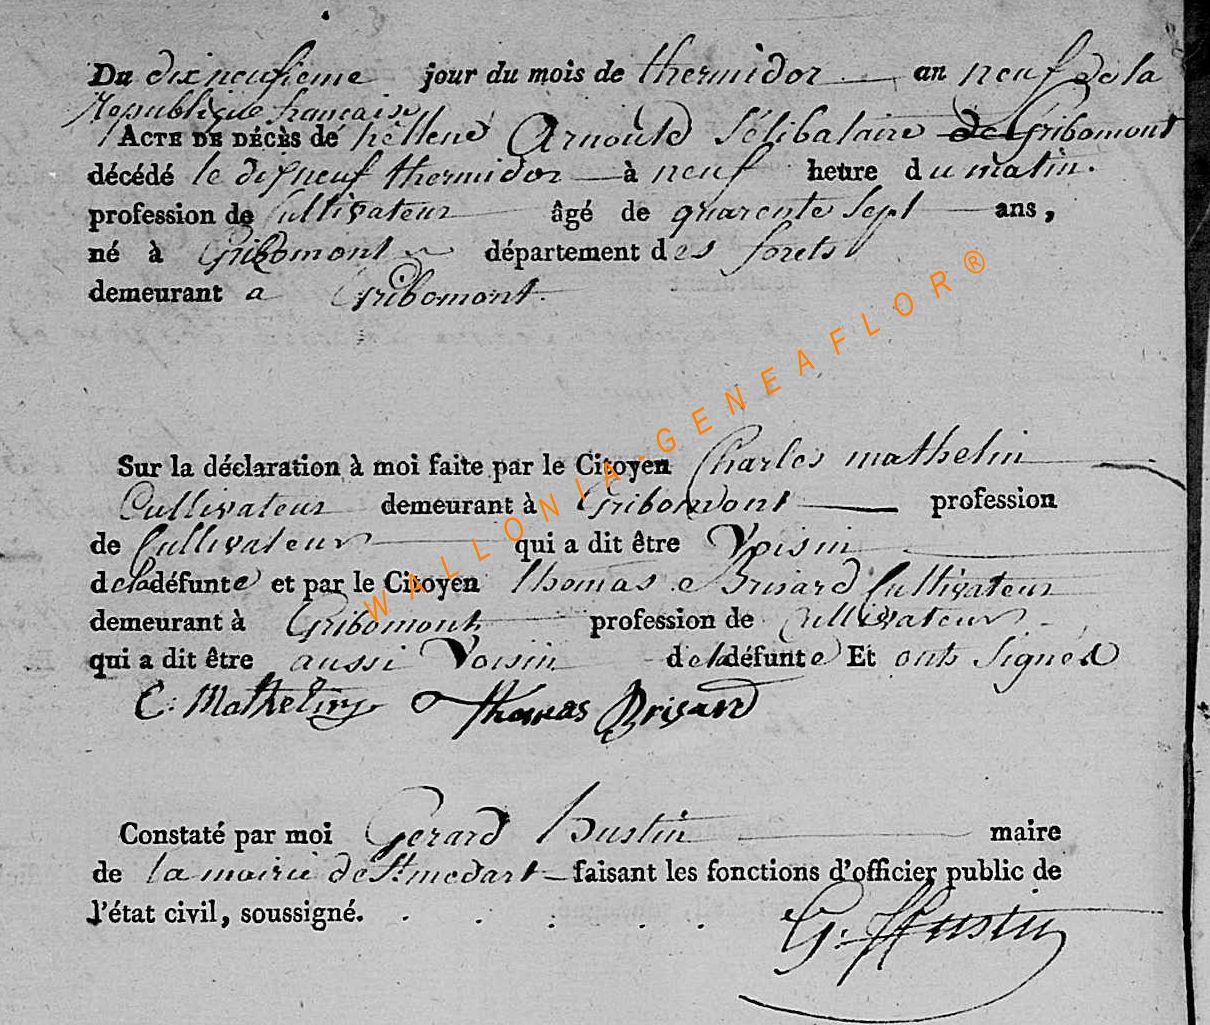 Du dix neufieme jour du mois de thermidor an neuf de la
Republique francaise
ACTE DE DÉCÈS de hellene Arnould Sélibataire de Gribomont
décédé le dix neuf thermidor à neuf heure du matin.
profession de Cultivateur âgé de quarente Sept ans,
né à Gribomont département des forets
demeurant a Gribomont.
Sur la déclaration à moi faite par le Citoyen Charles mathelin
Cultivateur demeurant à Gribomont profession
de Cultivateur qui a dit être Voisin
de la défunte et par le Citoyen thomas Brisard Cultivateur
demeurant à Gribomont profession de Cultivateur
qui a dit être aussi Voisin de la défunte Et onts Signed
C: Mathelin thomas Brisard
Constaté par moi Gerard hustin maire
de la mairie de St. medart faisant les fonctions d'officier public de
l'état civil, soussigné.
G. Hustin
WALLONIA-GENEAFLOR®